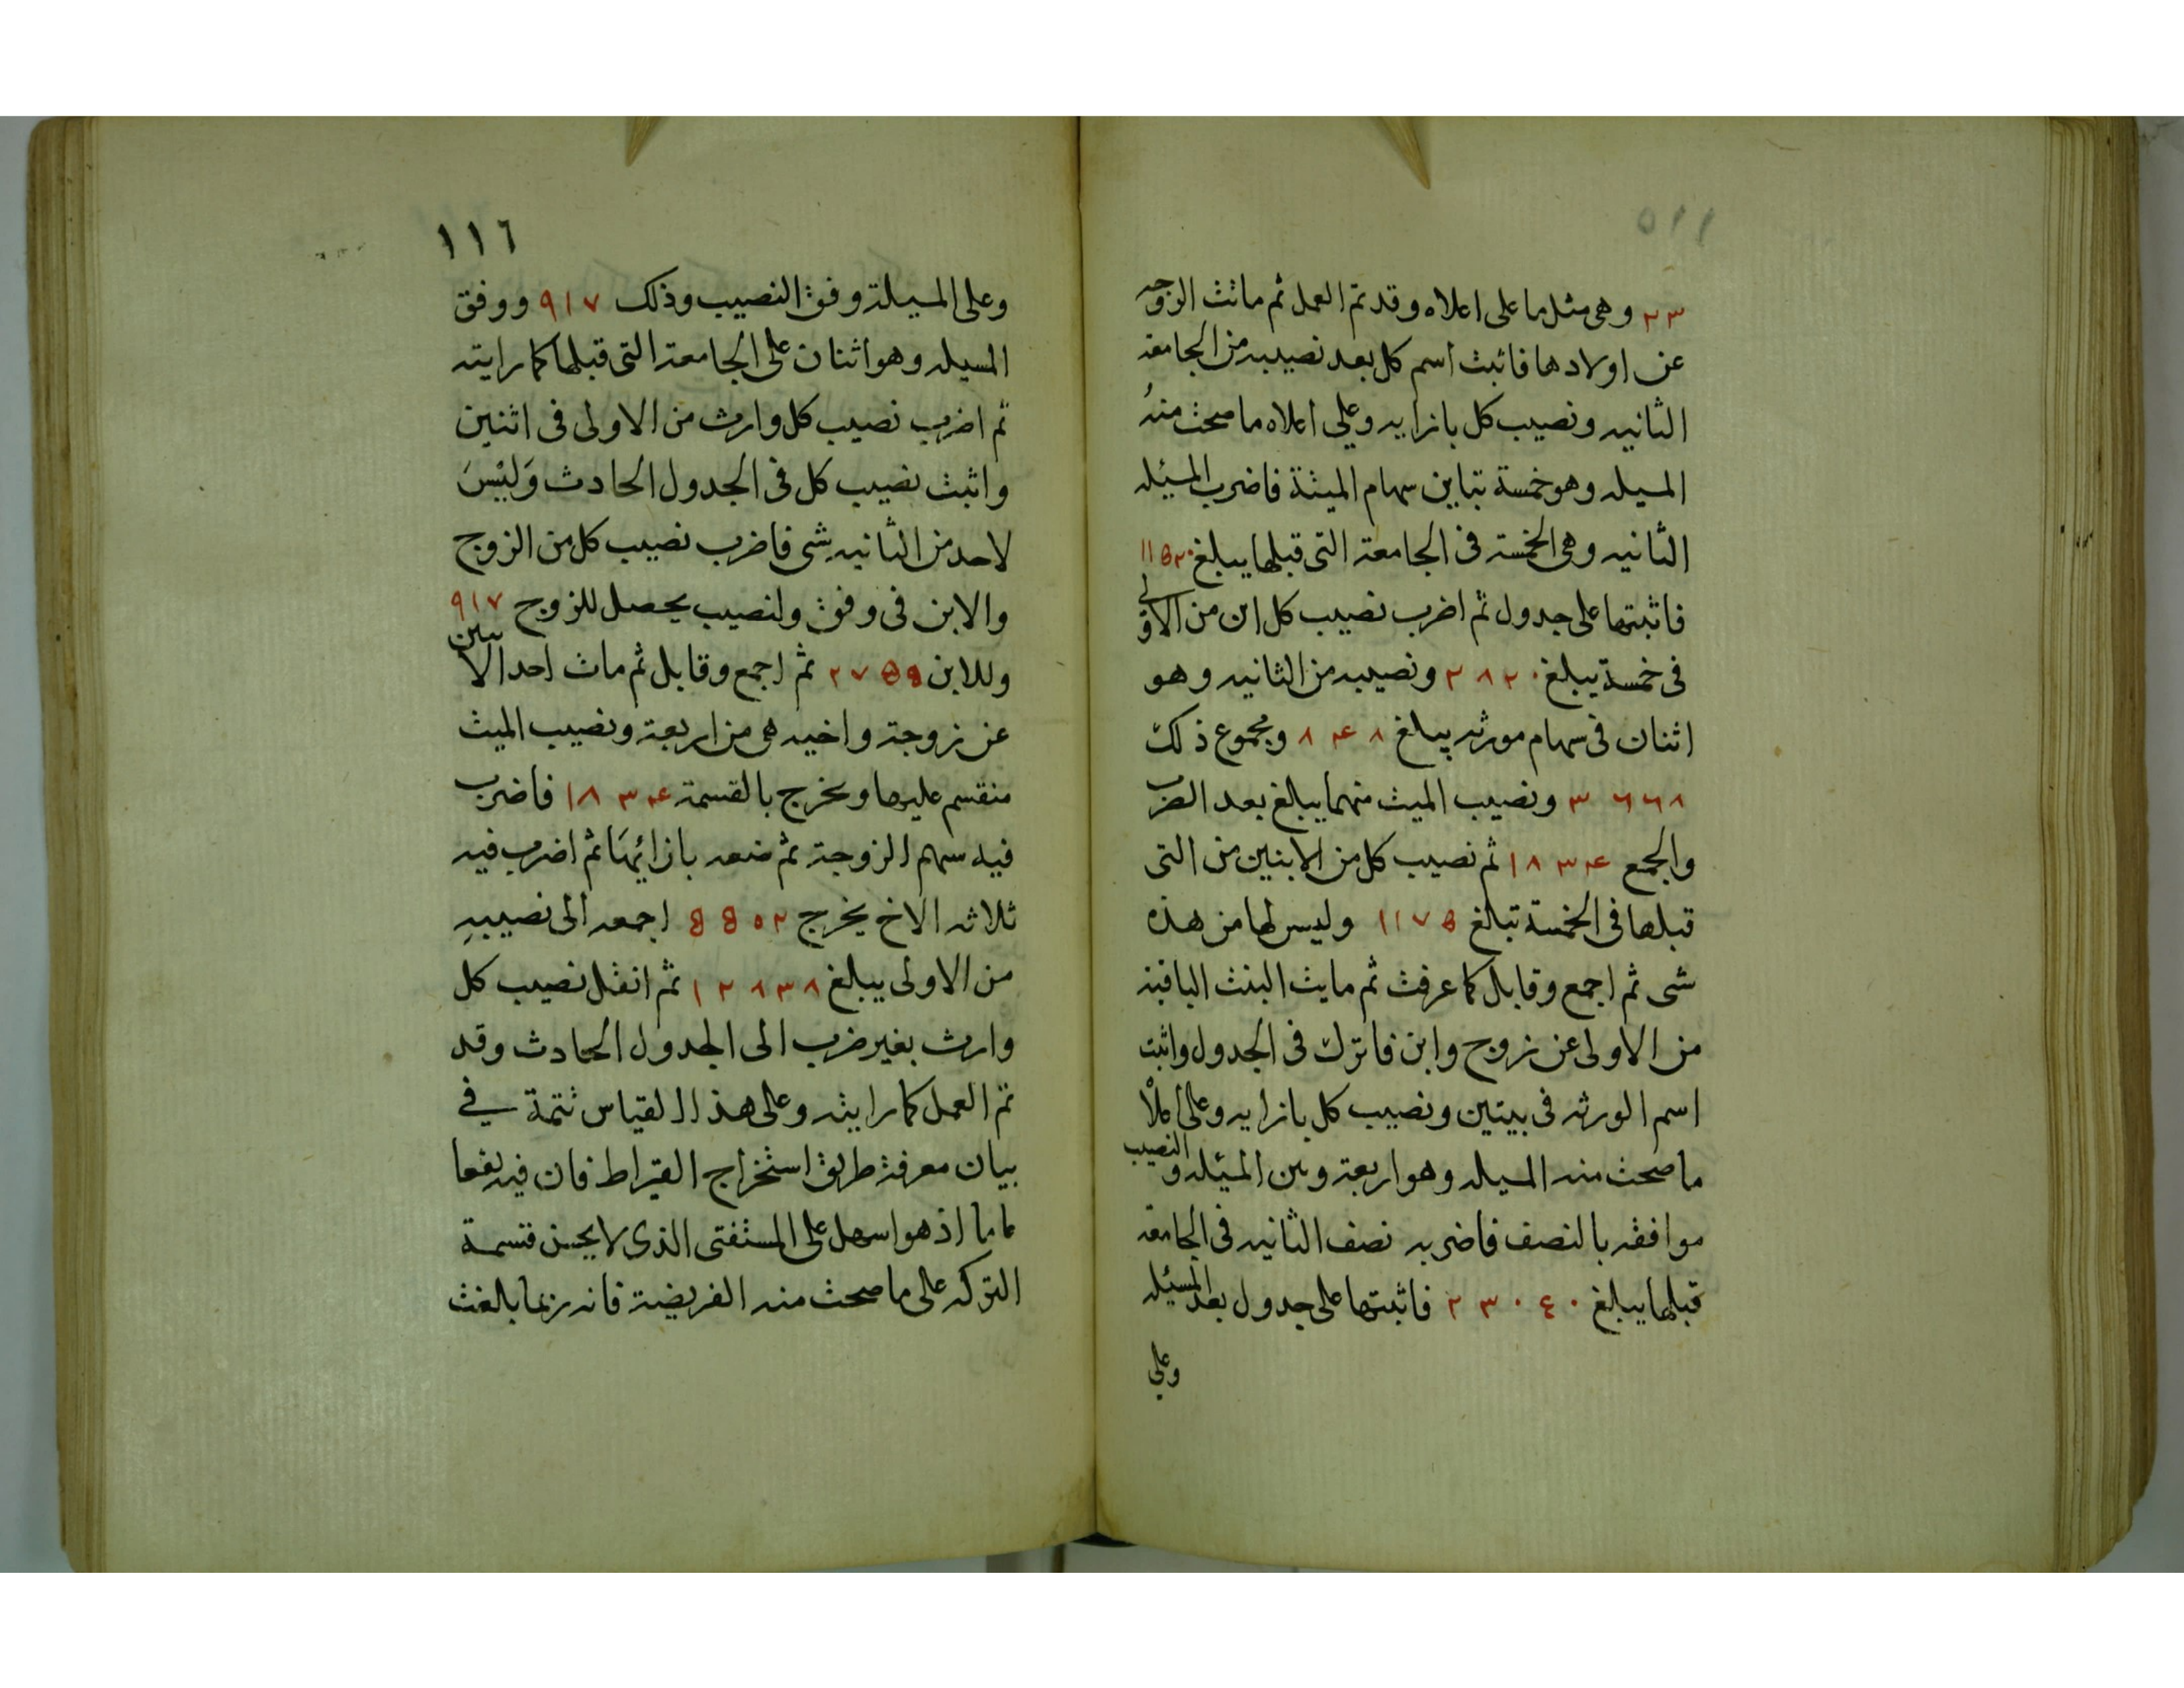 ٥١١
٢٣ وهى مثل ما على اعلاه وقد تم العمل ثم ماتت الزوجه
عن اولادها فاثبت اسم كل بعد نصيبه من الجامعه
الثانيه ونصيب كل بازايه وعلى اعلاه ما صحت منهُ
المسيله وهو خمسة تباين سهام الميتة فاضرب المسئله
الثانيه وهى الخمسة فى الجامعة التى قبلها يبلغ ١١٥٢٠
فاثبتها على جدول ثم اضرب نصيب كل ابن من الاولى
فى خمسة يبلغ ٢٨٢٠ ونصيبه من الثانيه وهو
اثنان فى سهام مورثه يبلغ ٨٤٨ ومجموع ذلك
٣٦٦٨ ونصيب الميت منهما يبلغ بعد الضرب
والجمع ١٨٣٤ ثم نصيب كل من الابنين من التى
قبلها فى الخمسة تبلغ ١١٧٥ وليس لها من هذه
شى ثم اجمع وقابل كما عرفت ثم مايت البنت الباقية
من الاولى عن زوج وابن فاترك فى الجدول واثبت
اسم الورثه فى بيتين ونصيب كل بازايه وعلى اعلاْ
ما صحت منه المسيله وهو اربعة وبين المسئله والنصيب
موافقه بالنصف فاضربه نصف الثانيه فى الجامعه
قبلها يبلغ ٢٣٠٤٠ فاثبتها على جدول بعد المسئيله
وعلى
١١٦
وعلى المسيلة وفق النصيب وذلك ٩١٧ ووفق
المسيله وهو اثنان على الجامعة التى قبلها كما رايته
ثم اضرب نصيب كل وارث من الاولى فى اثنين
واثبت نصيب كل فى الجدول الحادث وَليْسَ
لاحد من الثانيه شى فاضرب نصيب كل من الزوج
والابن فى وفق ولنصيب يحصل للزوج ٩١٧
وللابن ٢٧٥٩ ثم اجمع وقابل ثم مات احد الابنين
عن زوجة واخيه هى من اربعة ونصيب الميت
منقسم عليها ويخرج بالقسمة ١٨٣٤ فاضرب
فيه سهم الزوجة ثم ضعه بازائها ثم اضرب فيه
ثلاثه الاخ يخرج ٥٥٠٢ اجمعه الى نصيبهِ
من الاولى يبلغ ١٢٨٣٨ ثم انقل نصيب كل
وارث بغير ضرب الى الجدول الحادث وقد
تم العمل كما رايته وعلى هذا القياس تتمة في
بيان معرفة طريق استخراج القيراط فان فيه نفعا
تاما اذ هو اسهل على المستفتى الذى لا يحسن قسمة
التركه على ما صحت منه الفريضة فانه ربما بالغت